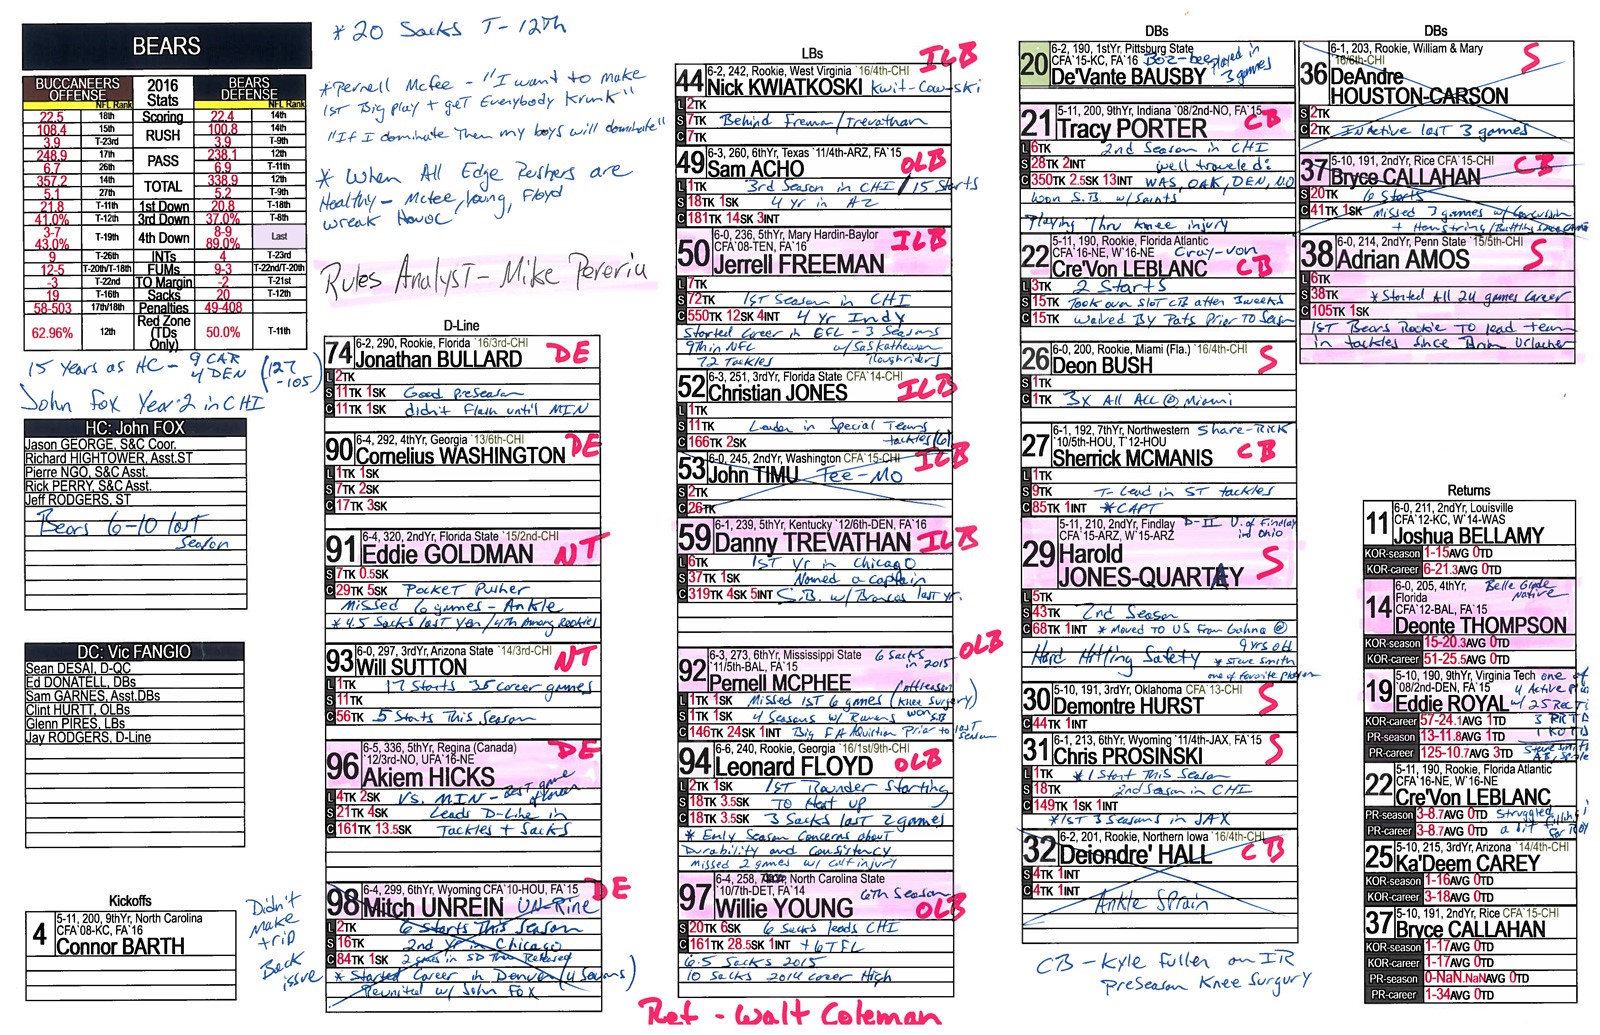 BEARS
* 20 Sacks T-12th
BUCCANEERS OFFENSE 2016 Stats BEARS DEFENSE
NFL Rank NFL Rank
22.5 18th Scoring 22.4 14th
108.4 15th RUSH 100.8 14th
3.9 T-23rd 3.9 T-9th
248.9 17th PASS 238.1 12th
6.7 26th 6.9 T-11th
357.2 14th TOTAL 338.9 12th
5.1 27th 5.2 T-9th
21.8 T-11th 1st Down 20.8 T-18th
41.0% T-12th 3rd Down 37.0% T-8th
3-7 43.0% T-19th 4th Down 8-9 89.0% Last
9 T-26th INTs 4 T-23rd
12-5 T-20th/T-18th FUMs 9-3 T-22nd/T-20th
-3 T-22nd TO Margin -2 T-21st
19 T-16th Sacks 20 T-12th
58-503 17th/18th Penalties 49-408
62.96% 12th Red Zone (TDs Only) 50.0% T-11th
15 Years as HC - 9 CAR 4 DEN (127 -105)
John Fox Year 2 in CHI
HC: John FOX
Jason GEORGE, S&C Coor.
Richard HIGHTOWER, Asst.ST
Pierre NGO, S&C Asst.
Rick PERRY, S&C Asst.
Jeff RODGERS, ST
Bears 6-10 last
Season
DC: Vic FANGIO
Sean DESAI, D-QC
Ed DONATELL, DBs
Sam GARNES, Asst.DBs
Clint HURTT, OLBs
Glenn PIRES, LBs
Jay RODGERS, D-Line
Kickoffs
5-11, 200, 9thYr, North Carolina
CFA'08-KC, FA'16
4 Connor BARTH
Didn't
make
trip
Back
issue
*Pernell McFee - "I want to make
1st Big play + get Everybody Krunk"
"If I dominate Then my boys will dominate"
* When All Edge Rushers are
Healthy - McFee, Young, Floyd
wreak Havoc
Rules Analyst - Mike Pereria
D-Line
6-2, 290, Rookie, Florida '16/3rd-CHI
74 Jonathan BULLARD DE
L 2TK
S 11TK 1SK Good preseason
C 11TK 1SK didn't Flash until MIN
6-4, 292, 4thYr, Georgia '13/6th-CHI
90 Cornelius WASHINGTON DE
L 1TK 1SK
S 7TK 2SK
C 17TK 3SK
6-4, 320, 2ndYr, Florida State '15/2nd-CHI
91 Eddie GOLDMAN NT
S 7TK 0.5SK
C 29TK 5SK Pocket Pusher
Missed 6 games - Ankle
* 4.5 Sacks last Year/4th Among Rookies
6-0, 297, 3rdYr, Arizona State '14/3rd-CHI
93 Will SUTTON NT
L 1TK 17 Starts 35 career games
S 11TK
C 56TK 5 Starts This Season
6-5, 336, 5thYr, Regina (Canada)
'12/3rd-NO, UFA'16-NE
96 Akiem HICKS DE
L 4TK 2SK VS. MIN - Best game of career
S 21TK 4SK Leads D-Line in
C 161TK 13.5SK Tackles + Sacks
6-4, 299, 6thYr, Wyoming CFA'10-HOU, FA'15
98 Mitch UNREIN UN-Rine DE
L 2TK 6 Starts This Season
S 16TK 2nd yr in Chicago
C 84TK 1SK 2 games in SD Then Released
* Started Career in Denver (4 Seasons)
Reunited w/ John Fox
LBs
6-2, 242, Rookie, West Virginia '16/4th-CHI
44 Nick KWIATKOSKI Kwit-Cow-ski ILB
L 2TK
S 7TK Behind Freman/Trevathan
C 7TK
6-3, 260, 6thYr, Texas '11/4th-ARZ, FA'15
49 Sam ACHO OLB
L 1TK 3rd Season in CHI / 15 Starts
S 18TK 1SK 4 yr in AZ
C 181TK 14SK 3INT
6-0, 236, 5thYr, Mary Hardin-Baylor
CFA'08-TEN, FA'16
50 Jerrell FREEMAN ILB
L 7TK
S 72TK 1st Season in CHI
C 550TK 12SK 4INT 4 yr Indy
Started Career in CFL - 3 Seasons
9th in NFL w/ Saskatchewan
72 Tackles Roughriders
6-3, 251, 3rdYr, Florida State CFA'14-CHI
52 Christian JONES ILB
L 1TK
S 11TK Leader in Special Teams
C 166TK 2SK tackles (6)
6-0, 245, 2ndYr, Washington CFA'15-CHI
53 John TIMU Tee-Mo ILB
S 2TK
C 26TK
6-1, 239, 5thYr, Kentucky '12/6th-DEN, FA'16
59 Danny TREVATHAN ILB
L 6TK 1st Yr in Chicago
S 37TK 1SK Named a captain
C 319TK 4SK 5INT S.B. w/ Broncos last yr.
6-3, 273, 6thYr, Mississippi State
'11/5th-BAL, FA'15 6 Sacks in 2015
92 Pernell MCPHEE OLB
L 1TK 1SK Missed 1st 6 games (offseason knee surgery)
S 1TK 1SK 4 Seasons w/ Ravens won SB
C 146TK 24SK 1INT Big FA Aquisition Prior to last season
6-6, 240, Rookie, Georgia '16/1st/9th-CHI
94 Leonard FLOYD OLB
L 2TK 1SK 1st Rounder Starting
S 18TK 3.5SK To Heat up
C 18TK 3.5SK 3 Sacks last 2 games
* Early Season Concerns about
Durability and Consistency
missed 2 games w/ calf injury
6-4, 258, North Carolina State
'10/7th-DET, FA'14 6th Season
97 Willie YOUNG OLB
S 20TK 6SK 6 Sacks leads CHI
C 161TK 28.5SK 1INT + 6 TFL
6.5 Sacks 2015
10 Sacks 2014 career High
Ref - Walt Coleman
DBs
6-2, 190, 1stYr, Pittsburg State
CFA'15-KC, FA'16 Boz-bee played in 3 games
20 De'Vante BAUSBY
5-11, 200, 9thYr, Indiana '08/2nd-NO, FA'15
21 Tracy PORTER CB
L 6TK 2nd Season in CHI
S 28TK 2INT well traveled:
C 350TK 2.5SK 13INT WAS, OAK, DEN, NO
won S.B. w/ Saints
Playing Thru Knee injury
5-11, 190, Rookie, Florida Atlantic
CFA'16-NE, W'16-NE Cray-von
22 Cre'Von LEBLANC CB
L 3TK 2 Starts
S 15TK Took over Slot CB after 3 weeks
C 15TK waived By Pats Prior To Season
6-0, 200, Rookie, Miami (Fla.) '16/4th-CHI
26 Deon BUSH S
S 1TK
C 1TK 3x All ACC @ Miami
6-1, 192, 7thYr, Northwestern Share-Rick
'10/5th-HOU, T'12-HOU
27 Sherrick MCMANIS CB
L 1TK
S 9TK T-Lead in ST tackles
C 85TK 1SK *CAPT
5-11, 210, 2ndYr, Findlay D-II U. of Findlay in Ohio
CFA'15-ARZ, W'15-ARZ
29 Harold JONES-QUARTEY S
L 5TK
S 43TK 2nd Season
C 68TK 1INT * Moved to US From Gahna @ 9 yrs old
Hard Hitting Safety * Steve Smith
one of favorite players
5-10, 191, 3rdYr, Oklahoma CFA'13-CHI
30 Demontre HURST S
C 44TK 1INT
6-1, 213, 6thYr, Wyoming '11/4th-JAX, FA'15
31 Chris PROSINSKI S
L 1TK * 1 Start This Season
S 18TK 2nd Season in CHI
C 149TK 1SK 1INT
* 1st 3 Seasons in JAX
6-2, 201, Rookie, Northern Iowa '16/4th-CHI
32 Deiondre' HALL CB
S 4TK 1INT
C 4TK 1INT Ankle Sprain
CB - Kyle Fuller on IR
Preseason Knee Surgury
DBs
6-1, 203, Rookie, William & Mary
'16/6th-CHI
36 DeAndre HOUSTON-CARSON S
S 2TK
C 2TK INActive last 3 games
5-10, 191, 2ndYr, Rice CFA'15-CHI
37 Bryce CALLAHAN CB
S 20TK 6 Starts
C 41TK 1SK Missed 3 games w/ Concussion
+ Hamstring/Battling
6-0, 214, 2ndYr, Penn State '15/5th-CHI
38 Adrian AMOS S
L 6TK
S 38TK * Started All 24 games Career
C 105TK 1SK
1st Bears Rookie To lead team
in tackles since Brian Urlacher
Returns
6-0, 211, 2ndYr, Louisville
CFA'12-KC, W'14-WAS
11 Joshua BELLAMY
KOR-season 1-15AVG 0TD
KOR-career 6-21.3AVG 0TD
6-0, 205, 4thYr, Florida Belle Glade Native
CFA'12-BAL, FA'15
14 Deonte THOMPSON
KOR-season 15-20.3AVG 0TD
KOR-career 51-25.5AVG 0TD
5-10, 190, 9thYr, Virginia Tech one of
'08/2nd-DEN, FA'15 4 Active
19 Eddie ROYAL w/ 25 Rec
KOR-career 57-24.1AVG 1TD
PR-season 13-11.8AVG 1TD
PR-career 125-10.7AVG 3TD
5-11, 190, Rookie, Florida Atlantic
CFA'16-NE, W'16-NE
22 Cre'Von LEBLANC
PR-season 3-8.7AVG 0TD Struggled
PR-career 3-8.7AVG 0TD a bit
5-10, 215, 3rdYr, Arizona '14/4th-CHI
25 Ka'Deem CAREY
KOR-season 1-16AVG 0TD
KOR-career 3-18AVG 0TD
5-10, 191, 2ndYr, Rice CFA'15-CHI
37 Bryce CALLAHAN
KOR-season 1-17AVG 0TD
KOR-career 1-17AVG 0TD
PR-season 0-NaN.NaNAVG 0TD
PR-career 1-34AVG 0TD